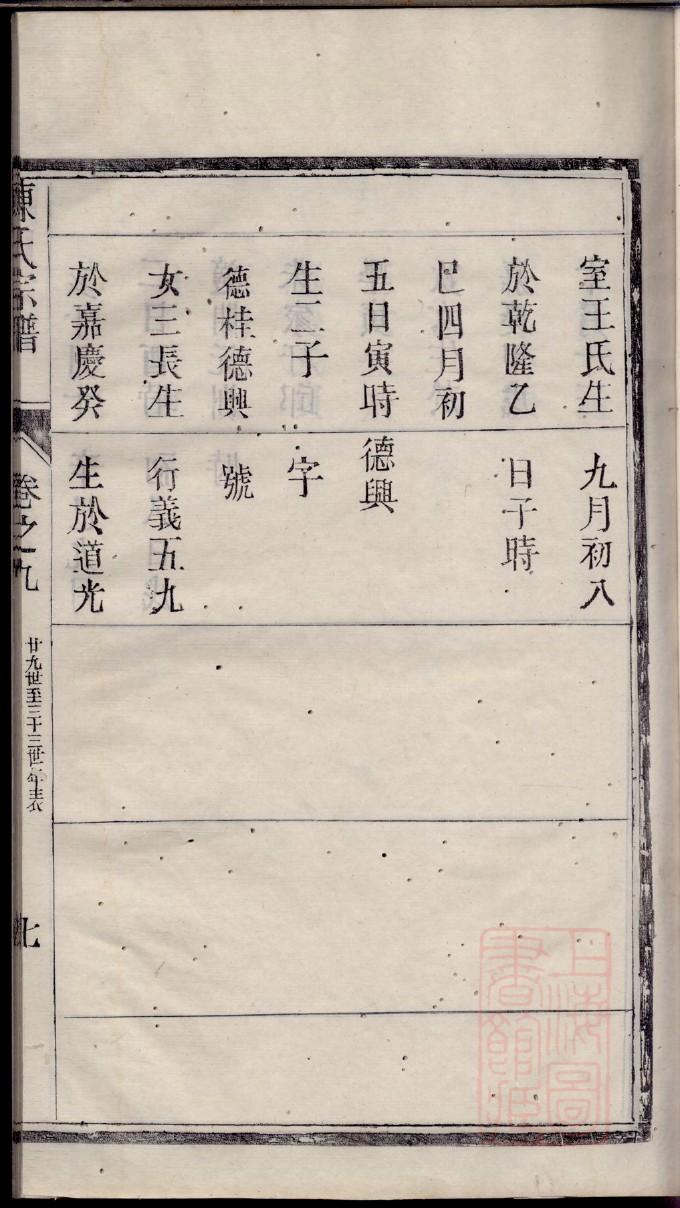 室王氏生
於乾隆乙
巳四月初
五日寅時
生二子
德桂德興
女三長生
於嘉慶癸
九月初八
日子時
德興
字
號
行義五九
生於道光
陳氏宗譜
卷之九
廿九世至三十三世年表
七
上海圖
書館藏